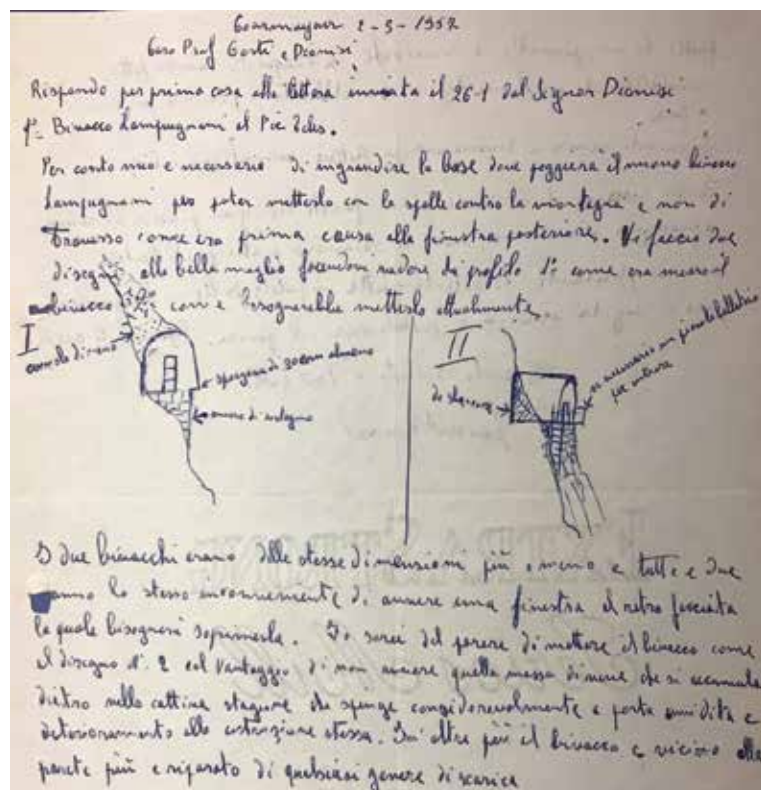 Courmayeur 2-3-1957
Caro Prof Corti e Dionisi
Rispondo per prima cosa alla lettera inviata il 26-1 dal Signor Dionisi
1°- Bivacco Lampugnani al Pic Eeles.
Per conto mio e necessario di ingrandire la base dove poggierà il nuovo bivacco
Lampugnani per poter metterlo con le spalle contro la montagna e non di
traverso come era prima causa alla finestra posteriore. Vi faccio due
disegni alla bella meglio facendovi vedere di profilo 1° come era messo il
bivacco e come bisognerebbe metterlo attualmente.
I
cumulo di neve
sporgenza di 30 cm almeno
muro di sostegno
II
da sbancare
se necessario un piccolo ballatoio
per entrare
I due bivacchi erano delle stesse dimensioni più o meno e tutte e due
anno lo stesso inconveniente di avvere una finestra al retro facciata
la quale bisognerà soprimerla. Io sarei del parere di mettere il bivacco come
il disegno N. 2 col vantaggio di non avvere quella massa di neve che si accumula
dietro nella cattiva stagione che spinge considerevolmente e porta umidita e
deterioramento alla costruzione stessa. In'oltre più il bivacco e vicino alla
parete più e riparato di qualsiasi genere di scarica